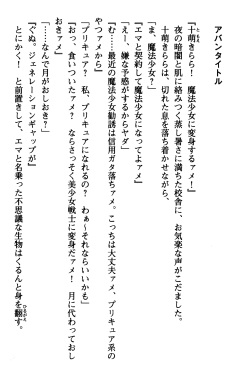 アバンタイトル
『十萌きらら！　魔法少女に変身するァメ！』
夜の暗闇と肌に絡みつく蒸し暑さに満ちた校舎に、お気楽な声がこだました。
十萌きららは、切れた息を落ち着かせながら、
「ま、魔法少女？」
『エマと契約して魔法少女になってよァメ』
「えー、嫌な予感がするからヤダ」
『む……最近の魔法少女勧誘は信用ガタ落ちァメ。こっちは大丈夫ァメ、プリキュア系の
やつァメから』
「プリキュア？　私、プリキュアになれるの？　わぁ〜それならいいかも」
『おっ、食いついたァメ？　ならさっそく美少女戦士に変身だァメ！　月に代わっておし
おきァメ』
「……なんで月がおしおき？」
『ぐぬ。ジェネレーションギャップが』
とにかく！　と前置きして、エマと名乗った不思議な生物はくるんと身を翻す。
とも
ひるがえ